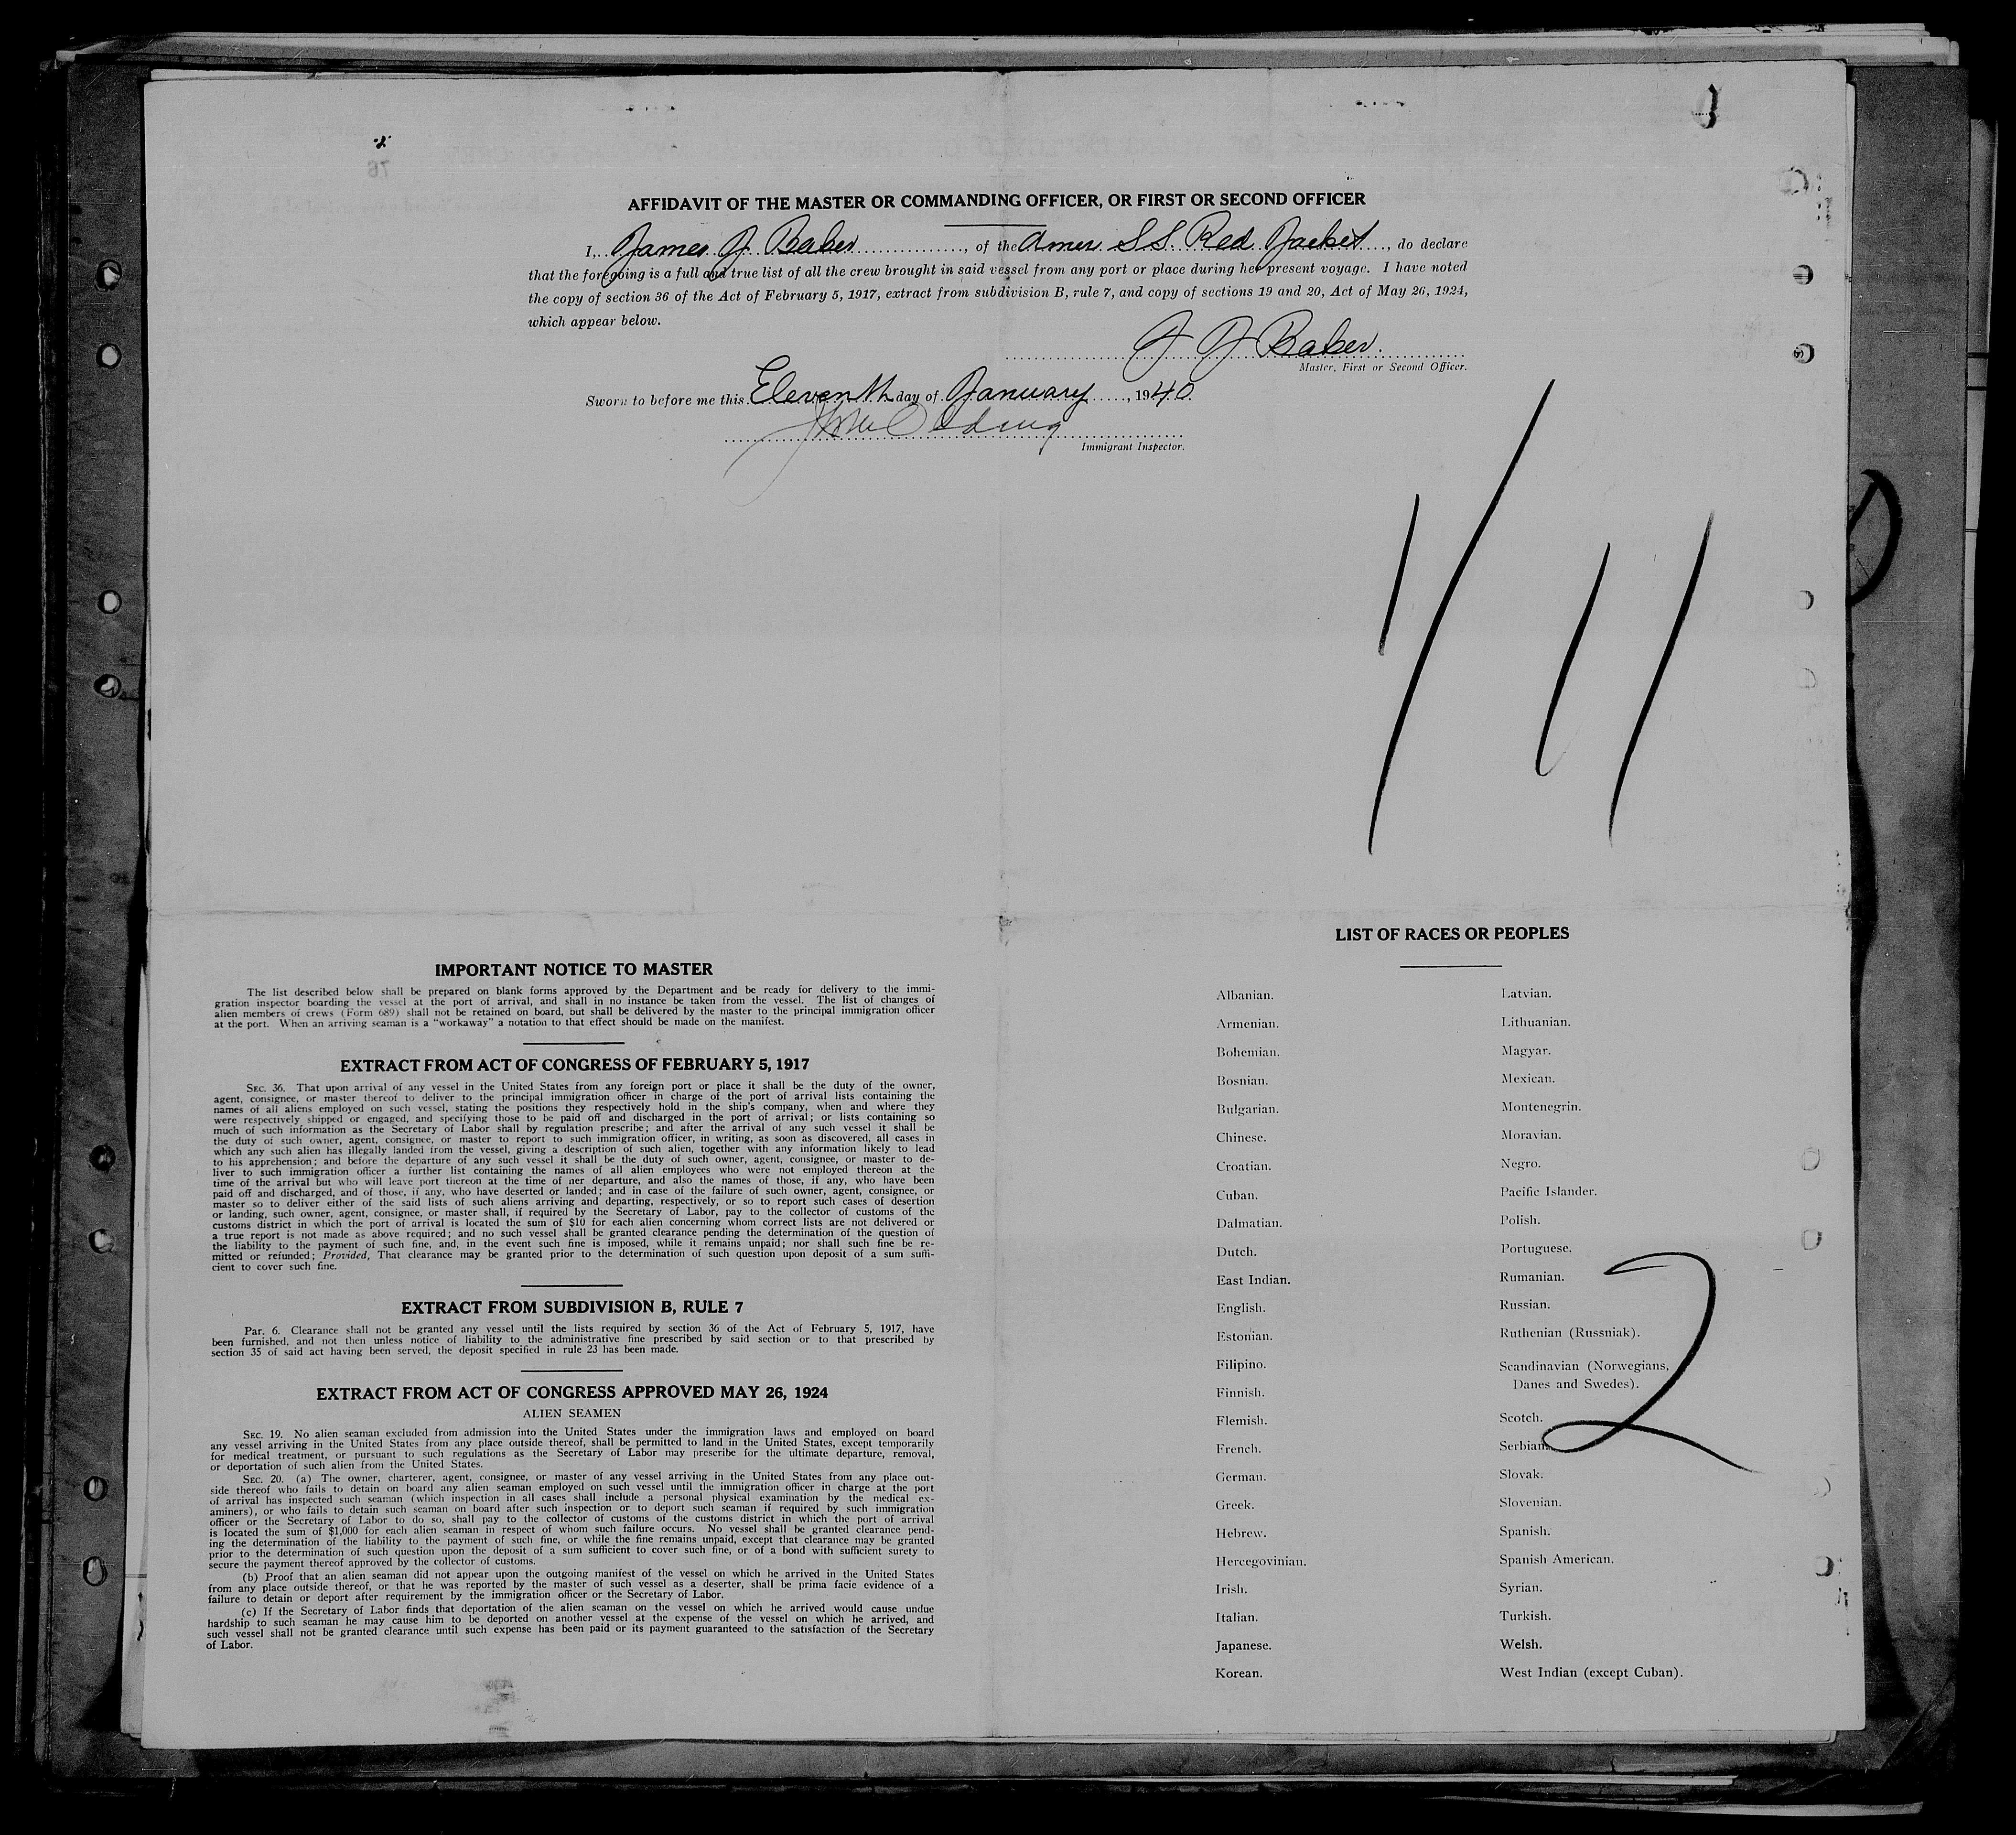 AFFIDAVIT OF THE MASTER OR COMMANDING OFFICER, OR FIRST OR SECOND OFFICER
I, James J. Baker, of the Amer. S.S. Red Jacket, do declare
that the foregoing is a full and true list of all the crew brought in said vessel from any port or place during her present voyage. I have noted
the copy of section 36 of the Act of February 5, 1917, extract from subdivision B, rule 7, and copy of sections 19 and 20, Act of May 26, 1924,
which appear below.
J J Baker.
Master, First or Second Officer.
Sworn to before me this Eleventh day of January, 1940
Immigrant Inspector.
1/11
IMPORTANT NOTICE TO MASTER
The list described below shall be prepared on blank forms approved by the Department and be ready for delivery to the immi-
gration inspector boarding the vessel at the port of arrival, and shall in no instance be taken from the vessel. The list of changes of
alien members of crews (Form 689) shall not be retained on board, but shall be delivered by the master to the principal immigration officer
at the port. When an arriving seaman is a "workaway" a notation to that effect should be made on the manifest.
EXTRACT FROM ACT OF CONGRESS OF FEBRUARY 5, 1917
SEC. 36. That upon arrival of any vessel in the United States from any foreign port or place it shall be the duty of the owner,
agent, consignee, or master thereof to deliver to the principal immigration officer in charge of the port of arrival lists containing the
names of all aliens employed on such vessel, stating the positions they respectively hold in the ship's company, when and where they
were respectively shipped or engaged, and specifying those to be paid off and discharged in the port of arrival; or lists containing so
much of such information as the Secretary of Labor shall by regulation prescribe; and after the arrival of any such vessel it shall be
the duty of such owner, agent, consignee, or master to report to such immigration officer, in writing, as soon as discovered, all cases in
which any such alien has illegally landed from the vessel, giving a description of such alien, together with any information likely to lead
to his apprehension; and before the departure of any such vessel it shall be the duty of such owner, agent, consignee, or master to de-
liver to such immigration officer a further list containing the names of all alien employees who were not employed thereon at the
time of the arrival but who will leave port thereon at the time of her departure, and also the names of those, if any, who have been
paid off and discharged, and of those, if any, who have deserted or landed; and in case of the failure of such owner, agent, consignee, or
master so to deliver either of the said lists of such aliens arriving and departing, respectively, or so to report such cases of desertion
or landing, such owner, agent, consignee, or master shall, if required by the Secretary of Labor, pay to the collector of customs of the
customs district in which the port of arrival is located the sum of $10 for each alien concerning whom correct lists are not delivered or
a true report is not made as above required; and no such vessel shall be granted clearance pending the determination of the question of
the liability to the payment of such fine, and, in the event such fine is imposed, while it remains unpaid; nor shall such fine be re-
mitted or refunded; Provided, That clearance may be granted prior to the determination of such question upon deposit of a sum suffi-
cient to cover such fine.
EXTRACT FROM SUBDIVISION B, RULE 7
Par. 6. Clearance shall not be granted any vessel until the lists required by section 36 of the Act of February 5, 1917, have
been furnished, and not then unless notice of liability to the administrative fine prescribed by said section or to that prescribed by
section 35 of said act having been served, the deposit specified in rule 23 has been made.
EXTRACT FROM ACT OF CONGRESS APPROVED MAY 26, 1924
ALIEN SEAMEN
SEC. 19. No alien seaman excluded from admission into the United States under the immigration laws and employed on board
any vessel arriving in the United States from any place outside thereof, shall be permitted to land in the United States, except temporarily
for medical treatment, or pursuant to such regulations as the Secretary of Labor may prescribe for the ultimate departure, removal,
or deportation of such alien from the United States.
SEC. 20. (a) The owner, charterer, agent, consignee, or master of any vessel arriving in the United States from any place out-
side thereof who fails to detain on board any alien seaman employed on such vessel until the immigration officer in charge at the port
of arrival has inspected such seaman (which inspection in all cases shall include a personal physical examination by the medical ex-
aminers), or who fails to detain such seaman on board after such inspection or to deport such seaman if required by such immigration
officer or the Secretary of Labor to do so, shall pay to the collector of customs of the customs district in which the port of arrival
is located the sum of $1,000 for each alien seaman in respect of whom such failure occurs. No vessel shall be granted clearance pend-
ing the determination of the liability to the payment of such fine, or while the fine remains unpaid, except that clearance may be granted
prior to the determination of such question upon the deposit of a sum sufficient to cover such fine, or of a bond with sufficient surety to
secure the payment thereof approved by the collector of customs.
(b) Proof that an alien seaman did not appear upon the outgoing manifest of the vessel on which he arrived in the United States
from any place outside thereof, or that he was reported by the master of such vessel as a deserter, shall be prima facie evidence of a
failure to detain or deport after requirement by the immigration officer or the Secretary of Labor.
(c) If the Secretary of Labor finds that deportation of the alien seaman on the vessel on which he arrived would cause undue
hardship to such seaman he may cause him to be deported on another vessel at the expense of the vessel on which he arrived, and
such vessel shall not be granted clearance until such expense has been paid or its payment guaranteed to the satisfaction of the Secretary
of Labor.
LIST OF RACES OR PEOPLES
Albanian.
Armenian.
Bohemian.
Bosnian.
Bulgarian.
Chinese.
Croatian.
Cuban.
Dalmatian.
Dutch.
East Indian.
English.
Estonian.
Filipino.
Finnish.
Flemish.
French.
German.
Greek.
Hebrew.
Hercegovinian.
Irish.
Italian.
Japanese.
Korean.
Latvian.
Lithuanian.
Magyar.
Mexican.
Montenegrin.
Moravian.
Negro.
Pacific Islander.
Polish.
Portuguese.
Rumanian.
Russian.
Ruthenian (Russniak).
Scandinavian (Norwegians,
Danes and Swedes).
Scotch.
Serbian.
Slovak.
Slovenian.
Spanish.
Spanish American.
Syrian.
Turkish.
Welsh.
West Indian (except Cuban).
2